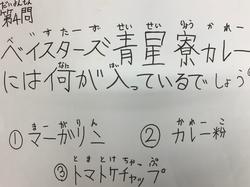 だいよんもん
第4問
べいすたーず せい せい りょう かれー
ベイスターズ青星寮カレー
なに はい
には何が入っているでしょう
まーがりん かれーこ
①マーガリン ②カレー粉
とまとけちゃっぷ
③トマトケチャップ